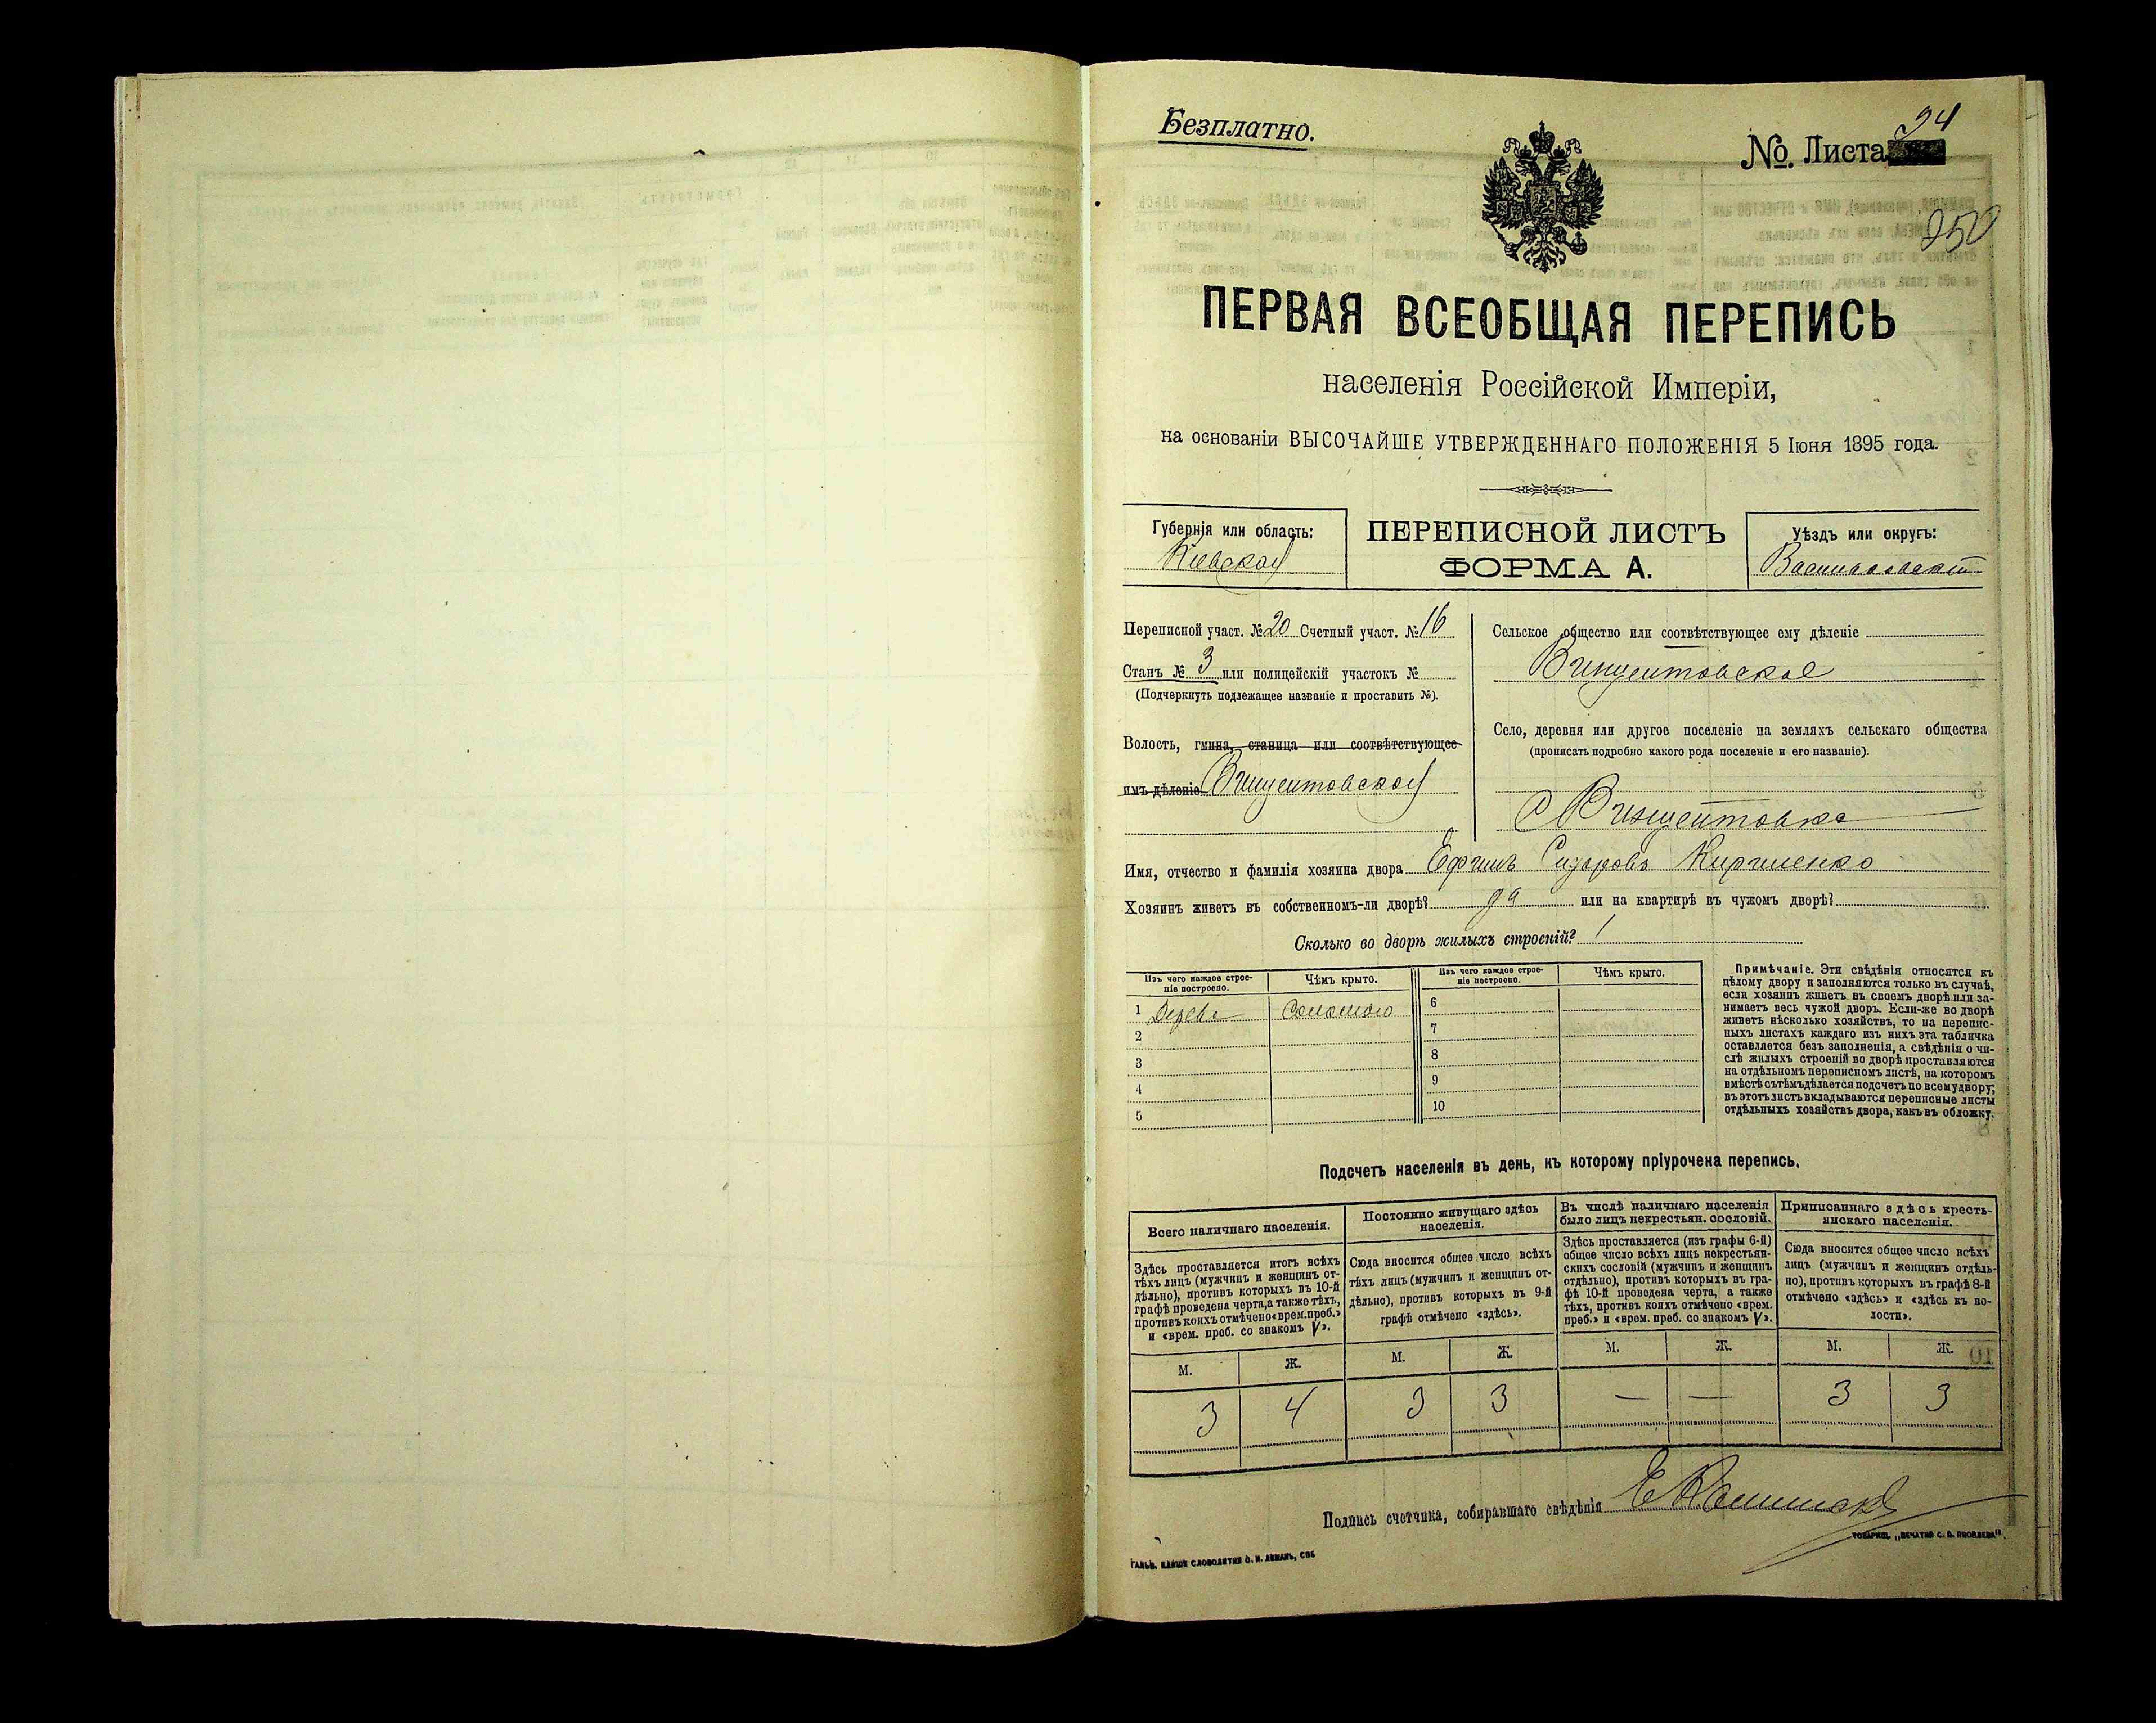 Безплатно.
№ Листа 94
250
ПЕРВАЯ ВСЕОБЩАЯ ПЕРЕПИСЬ
населенія Россійской Имперіи,
на основаніи ВЫСОЧАЙШЕ УТВЕРЖДЕННАГО ПОЛОЖЕНІЯ 5 Іюня 1895 года.
Губернія или область:
Кіевская
ПЕРЕПИСНОЙ ЛИСТЪ
ФОРМА А.
Уѣздъ или округъ:
Васильковскій
Переписной участ. № 20 Счетный участ. № 16
Станъ № 3 или полицейскій участокъ №
(Подчеркнуть подлежащее названіе и проставить №).
Волость, гмина, станица или соотвѣтствующее
имъ дѣленіе Винцентовская
Сельское общество или соотвѣтствующее ему дѣленіе
Винцентовское
Село, деревня или другое поселеніе на земляхъ сельскаго общества
(прописать подробно какого рода поселеніе и его названіе).
С Винцентовка
Имя, отчество и фамилія хозяина двора Ефимъ Сидоровъ Кириленко
Хозяинъ живетъ въ собственномъ-ли дворѣ? да или на квартирѣ въ чужомъ дворѣ?
Сколько во дворѣ жилыхъ строеній? 1
Изъ чего каждое строе-
ніе построено.
Чѣмъ крыто.
Изъ чего каждое строе-
ніе построено.
Чѣмъ крыто.
1 Дерева Соломою
2
3
4
5
6
7
8
9
10
Примѣчаніе. Эти свѣдѣнія относятся къ
цѣлому двору и заполняются только въ случаѣ,
если хозяинъ живетъ въ своемъ дворѣ или за-
нимаетъ весь чужой дворъ. Если-же во дворѣ
живетъ нѣсколько хозяйствъ, то на перепис-
ныхъ листахъ каждаго изъ нихъ эта табличка
оставляется безъ заполненія, а свѣдѣнія о чи-
слѣ жилыхъ строеній во дворѣ проставляются
на отдѣльномъ переписномъ листѣ, на которомъ
вмѣстѣ съ тѣмъ дѣлается подсчетъ по всему двору;
въ этотъ листъ вкладываются переписные листы
отдѣльныхъ хозяйствъ двора, какъ въ обложку.
Подсчетъ населенія въ день, къ которому пріурочена перепись.
Всего наличнаго населенія.
Постоянно живущаго здѣсь
населенія.
Въ числѣ наличнаго населенія
было лицъ некрестьян. сословій.
Приписаннаго здѣсь кресть-
янскаго населенія.
Здѣсь проставляется итогъ всѣхъ
тѣхъ лицъ (мужчинъ и женщинъ от-
дѣльно), противъ которыхъ въ 10-й
графѣ проведена черта, а также тѣхъ,
противъ коихъ отмѣчено «врем. преб.»
и «врем. преб. со знакомъ V».
Сюда вносится общее число всѣхъ
тѣхъ лицъ (мужчинъ и женщинъ от-
дѣльно), противъ которыхъ въ 9-й
графѣ отмѣчено «здѣсь».
Здѣсь проставляется (изъ графы 6-й)
общее число всѣхъ лицъ некрестьян-
скихъ сословій (мужчинъ и женщинъ
отдѣльно), противъ которыхъ въ гра-
фѣ 10-й проведена черта, а также
тѣхъ, противъ коихъ отмѣчено «врем.
преб.» и «врем. преб. со знакомъ V».
Сюда вносится общее число всѣхъ
лицъ (мужчинъ и женщинъ отдѣль-
но), противъ которыхъ въ графѣ 8-й
отмѣчено «здѣсь» и «здѣсь къ во-
лости».
М. Ж. М. Ж. М. Ж. М. Ж.
3 4 3 3 — — 3 3
Подпись счетчика, собиравшаго свѣдѣнія